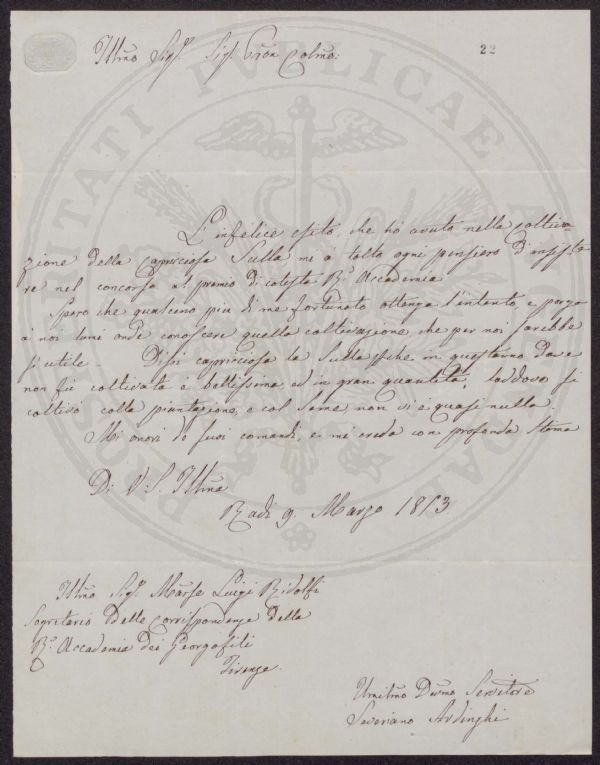 22
Illmo Sigr. Sigr. Pron Colmo.
L'infelice esito, che ho avuto nella coltiva
zione della capricciosa Sulla mi à tolto ogni pensiero d'insiste
re nel concorso al premio di cotesta Rl. Accademia
Spero che qualcuno più di me fortunato ottenga l'intento e porga
à noi lumi onde conoscere quella coltivazione, che per noi sarebbe
sì utile. Dissi capricciosa la Sulla perche in quest'anno dove
non fù coltivata è bellissima, ed in gran quantità, laddove si
coltivò colla piantazione, e col seme non vi è quasi nulla.
Mi onori de suoi comandi, e mi creda con profonda stima
Di V: S. Illma
Radi 9. Marzo 1853
Illmo Sigr. Marse Luigi Ridolfi
Segretario delle Corrispondenze della
Rl. Accademia dei Georgofili
Firenze.
Umilmo Devmo Servitore
Saveriano Ardinghi
PROSPERITATI PUBLICAE AUGENDAE